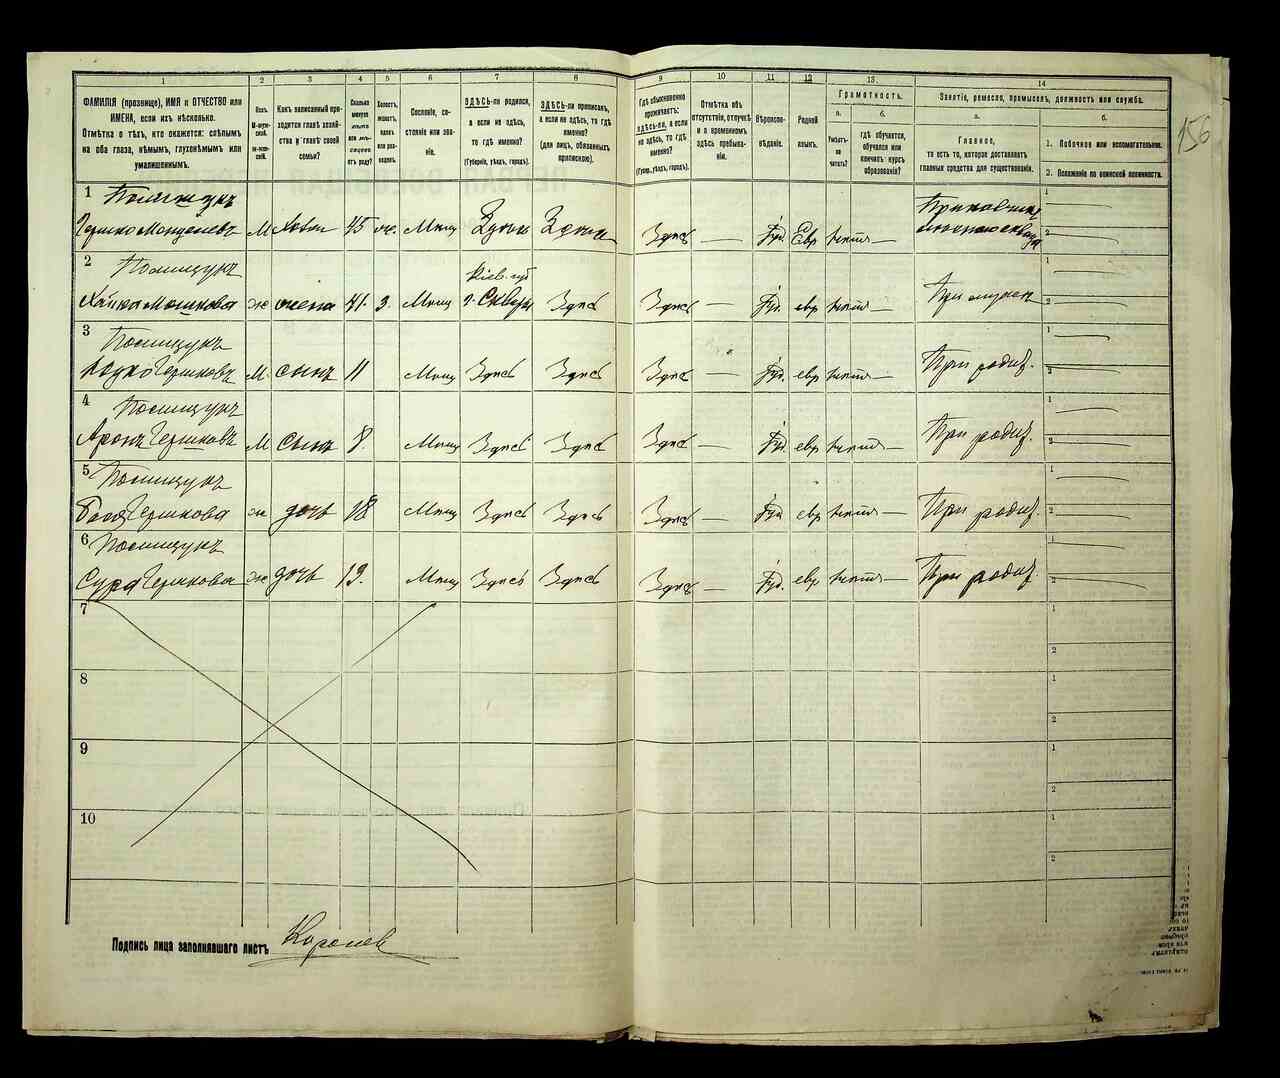 1
2
3
4
5
6
7
8
9
10
11
12
13
14
ФАМИЛІЯ (прозвище), ИМЯ и ОТЧЕСТВО или
ИМЕНА, если ихъ нѣсколько.
Отмѣтка о тѣхъ, кто окажется: слѣпымъ
на оба глаза, нѣмымъ, глухонѣмымъ или
умалишеннымъ.
Полъ
М-мужской.
Ж-женскій.
Какъ записанный приходится
главѣ хозяйства
и главѣ своей
семьи?
Сколько
минуло
лѣтъ
или мѣсяцевъ
отъ роду?
Холостъ,
женатъ,
вдовъ
или разведенъ.
Сословіе, состояніе
или званіе.
ЗДѢСЬ-ли родился,
а если не здѣсь,
то гдѣ именно?
(Губернія, уѣздъ, городъ).
ЗДѢСЬ-ли приписанъ,
а если не здѣсь, то гдѣ
именно?
(для лицъ, обязанныхъ
припискою).
Гдѣ обыкновенно
проживаетъ:
здѣсь-ли, а если
не здѣсь, то гдѣ
именно?
(Губер., уѣздъ, городъ).
Отмѣтка объ
отсутствіи, отлучкѣ
и о временномъ
здѣсь пребываніи.
Вѣроисповѣданіе.
Родной
языкъ.
Грамотность.
а.
Умѣетъ-ли
читать?
б.
гдѣ обучается,
обучался или
кончилъ курсъ
образованія?
Занятіе, ремесло, промыселъ, должность или служба.
а.
Главное,
то есть то, которое доставляетъ
главныя средства для существованія.
б.
1. Побочное или вспомогательное.
2. Положеніе по воинской повинности.
156
1 Полищукъ
Гершко М 45 Мѣщ Здѣсь Здѣсь Здѣсь — Іуд Евр —
2 Полищукъ
Кіев. губ
Хайка Мошкова ж жена 41. з. Мѣщ г. Сквира Здѣсь Здѣсь — Іуд. евр — При мужѣ
3 Полищукъ
Гершковъ М. сынъ 11 Мѣщ Здѣсь Здѣсь Здѣсь — Іуд. евр — При родит.
4 Полищукъ
Аронъ Гершковъ М сынъ 8. Мѣщ Здѣсь Здѣсь Здѣсь — Іуд. евр — При родит.
5 Полищукъ
Гершкова ж дочь 18 Мѣщ Здѣсь Здѣсь Здѣсь — Іуд евр — При родит.
6 Полищукъ
Сура Гершкова ж дочь 13. Мѣщ Здѣсь Здѣсь Здѣсь — Іуд. евр — При родит.
7
8
9
10
Подпись лица заполнявшаго листъ